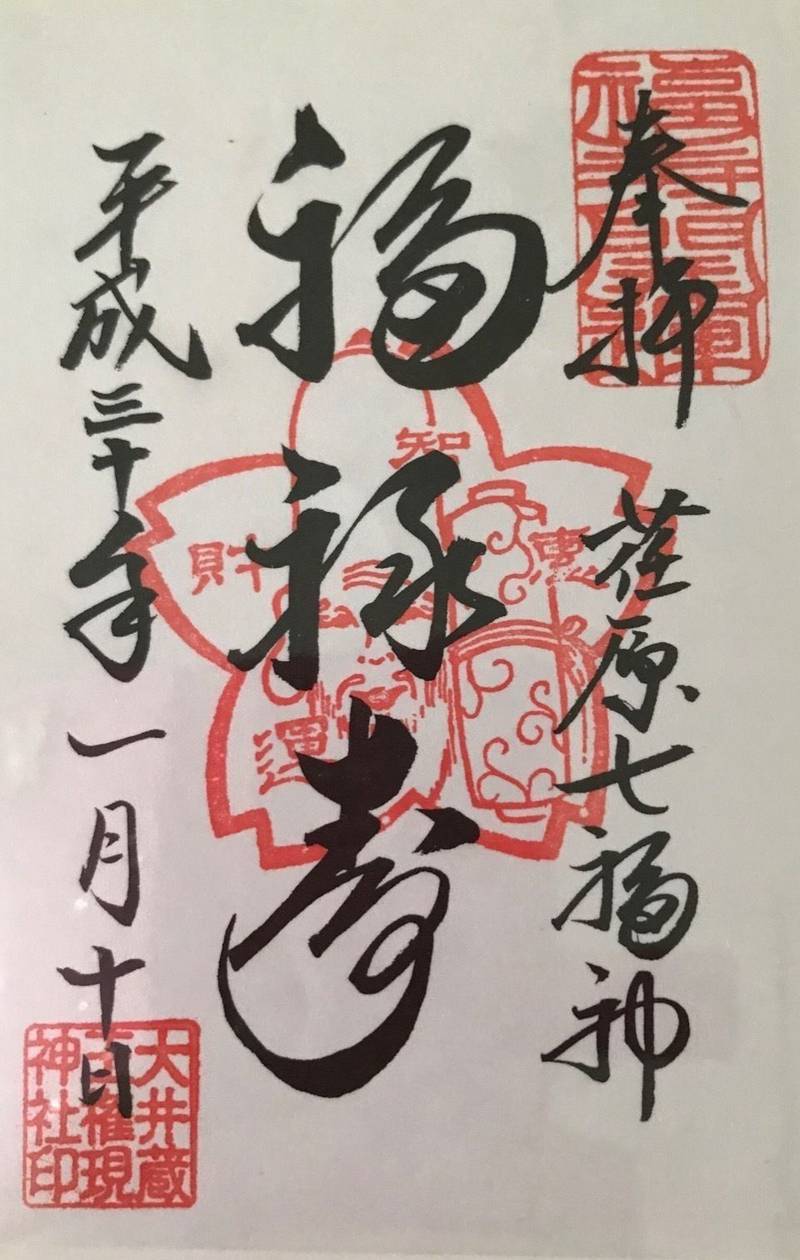 奉拝
荏原七福神
福禄寿
智
恵
財
運
平成三十年一月十日
大井蔵
王権現
神社印